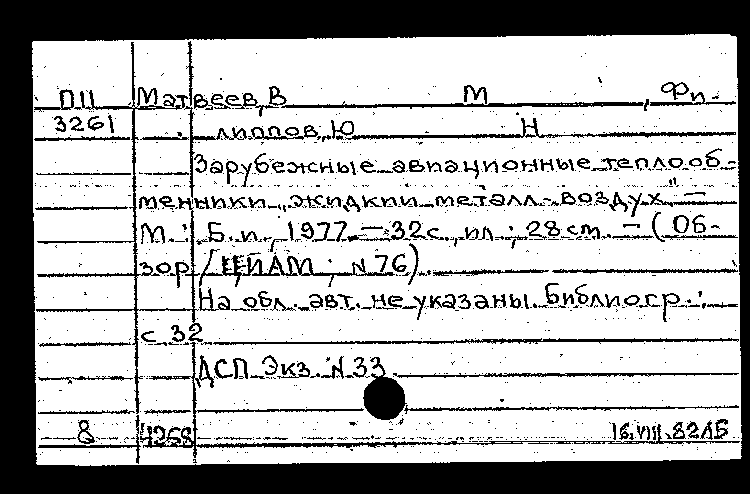 ПII Матвеев, В М , Фи-
3261 липпов, Ю Н
Зарубежные авиационные теплооб-
менники „жидкий металл - воздух" –
М.: Б. и., 1977. – 32 с., ил.; 28 см. – (Об-
зор / ЦИАМ; N 76).
На обл. авт. не указаны. Библиогр.:
с. 32
ДСП Экз. N 33.
8 4268 16.VIII.82